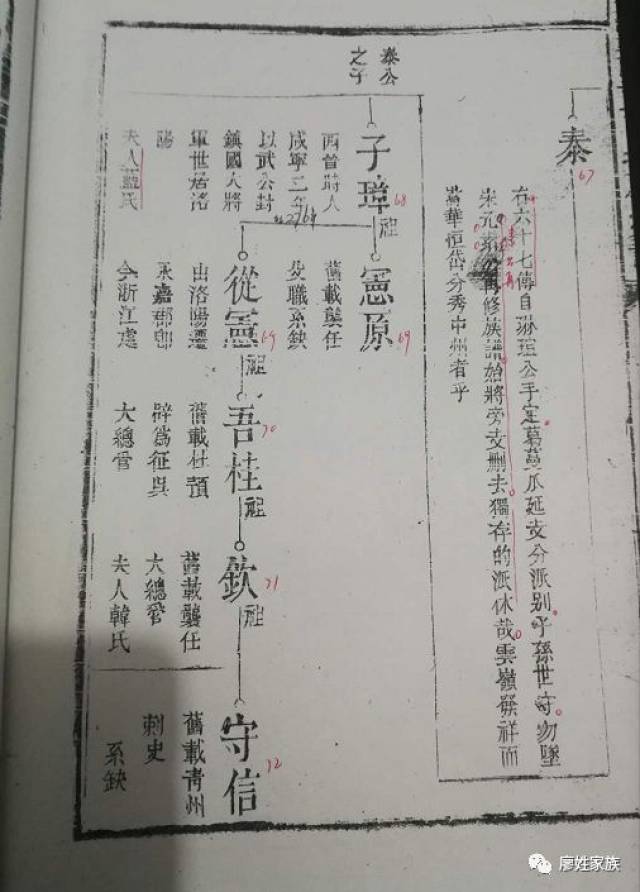 泰
67
右六十七傳自琳瑄公手定葛蔓瓜延支分派别子孫世守勿墜
修族譜始將旁支刪去獨存的派休哉雲嶺篠祥而
嵩華恒岱分秀中州者乎
泰公
之子
子璋
68
祖
西晉時人
咸寧二年
以武公封
鎮國大將
軍世居洛
陽
夫人藍氏
憲原
69
舊載襲任
父職系缺
從憲
69
祖
由洛陽遷
永嘉郡卽
今浙江處
吾桂
70
祖
舊載杜預
辟爲征吳
大總管
欽
71
祖
舊載襲任
大總管
夫人韓氏
守信
72
舊載青州
刺史
系缺
廖姓家族